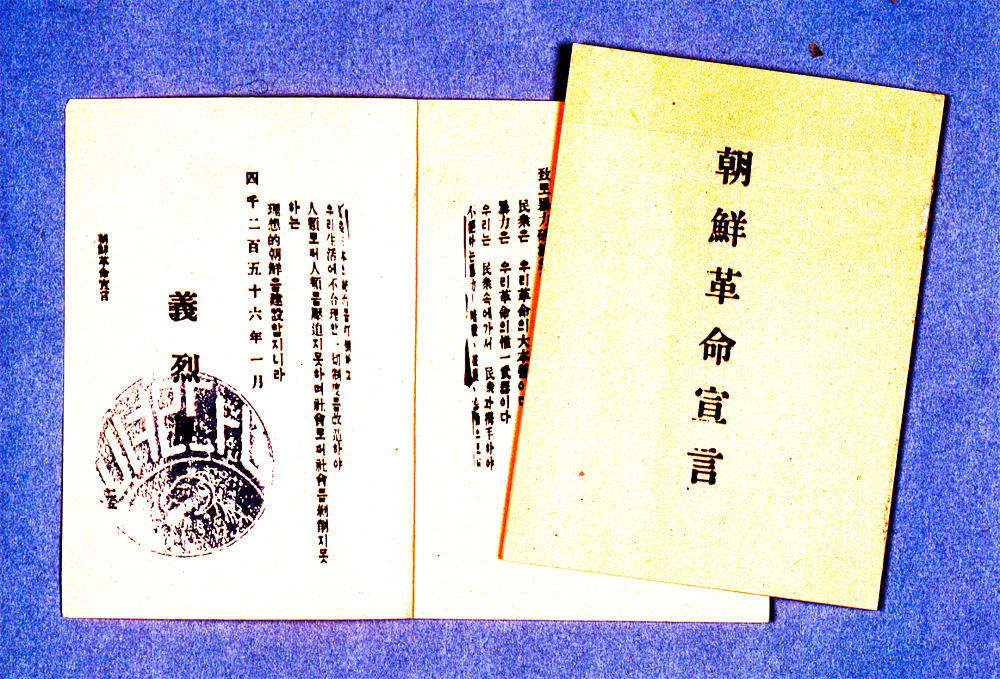 朝鮮革命宣言
致로暴力
民衆은 우리革命의大本營이다
暴力은 우리革命의惟一武器이다
우리는 民衆속에가서 民衆과携手하야
不絶하는暴力
우리生活에不合理한一切制度를改造하야
人類로써人類를壓迫지못하며社會로써社會를剝削지못
하는
理想的朝鮮을建設할지니라
四千二百五十六年一月
義烈團
朝鮮革命宣言